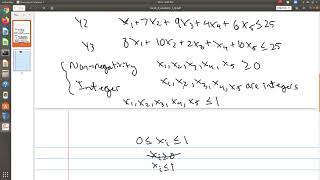 Y2 x₁+7x₂+9x₃+4x₄+6x₅≤25
Y3 8x₁+10x₂+2x₃+x₄+10x₅≤25
Non-negativity x₁,x₂,x₃,x₄,x₅ ≥0
Integer x₁,x₂,x₃,x₄,x₅ are integers
x₁,x₂,x₃,x₄,x₅ ≤1
0≤xᵢ≤1
xᵢ≥0
xᵢ≤1